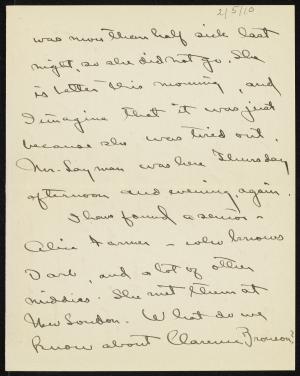 2/5/10
was more than half sick last
night, so she did not go. She
is better this morning, and
I imagine that it was just
because she was tired out.
Mr. Layman was here Thursday
afternoon and evening again.
I have found a senior -
Alice Farmer - who knows
Darb, and a lot of other
middies. She met them at
New London. What do we
know about Clarence Bronson?